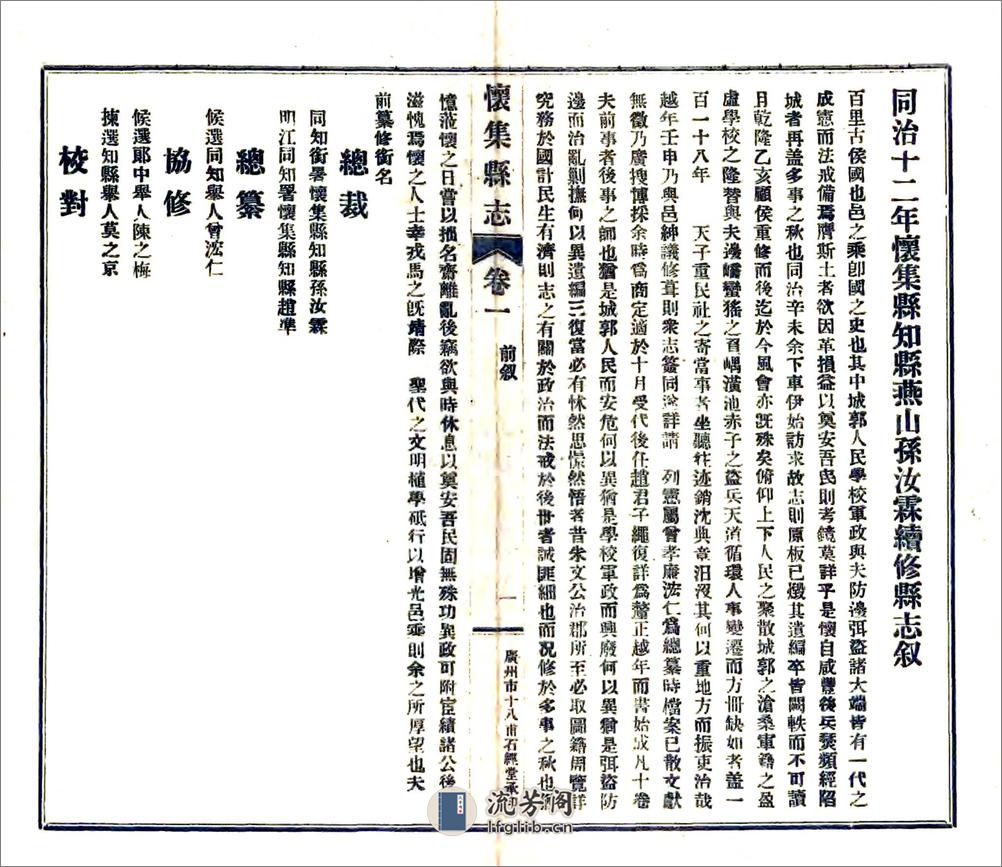 同治十二年懷集縣知縣燕山孫汝霖續修縣志叙
百里古侯國也邑之乘卽國之史也其中城郭人民學校軍政與夫防邊弭盜諸大端皆有一代之
成憲而法戒備焉膺斯土者欲因革損益以奠安吾民則考鏡莫詳乎是懷自咸豐後兵燹頻經陷
城者再蓋多事之秋也同治辛未余下車伊始訪求故志則原板已燬其遺編卒皆闕軼而不可讀
且乾隆乙亥顧侯重修而後迄於今風會亦旣殊矣俯仰上下人民之聚散城郭之滄桑軍籍之盈
虛學校之隆替與夫邊嶠蠻猺之負嵎潢池赤子之盜兵天道循環人事變遷而方冊缺如者蓋一
百一十八年 天子重民社之寄當事者坐聽往迹銷沈典章汨沒其何以重地方而振吏治哉
越年壬申乃與邑紳議修葺則衆志簽同遂詳請 列憲屬曾孝廉浤仁爲總纂時檔案已散文獻
無徵乃廣搜博採余時爲商定適於十月受代後任趙君子繩復詳爲釐正越年而書始成凡十卷
夫前事者後事之師也猶是城郭人民而安危何以異猶是學校軍政而興廢何以異猶是弭盜防
邊而治亂剿撫何以異遺編三復當必有怵然思憬然悟者昔朱文公治郡所至必取圖籍周覽詳
究務於國計民生有濟則志之有關於政治而法戒於後世者誠匪細也而况修於多事之秋也
懷集縣志 卷一 前叙 一 廣州市十八甫石經堂承
憶蒞懷之日嘗以損名齋離亂後竊欲與時休息以奠安吾民固無殊功異政可附宦績諸公後
滋愧焉懷之人士幸戎馬之旣靖際 聖代之文明植學砥行以增光邑乘則余之所厚望也夫
前纂修銜名
總裁
同知銜署懷集縣知縣孫汝霖
明江同知署懷集縣知縣趙準
總纂
候選同知舉人曾浤仁
協修
候選郞中舉人陳之梅
揀選知縣舉人莫之京
校對
流芳阁
lfglib.com